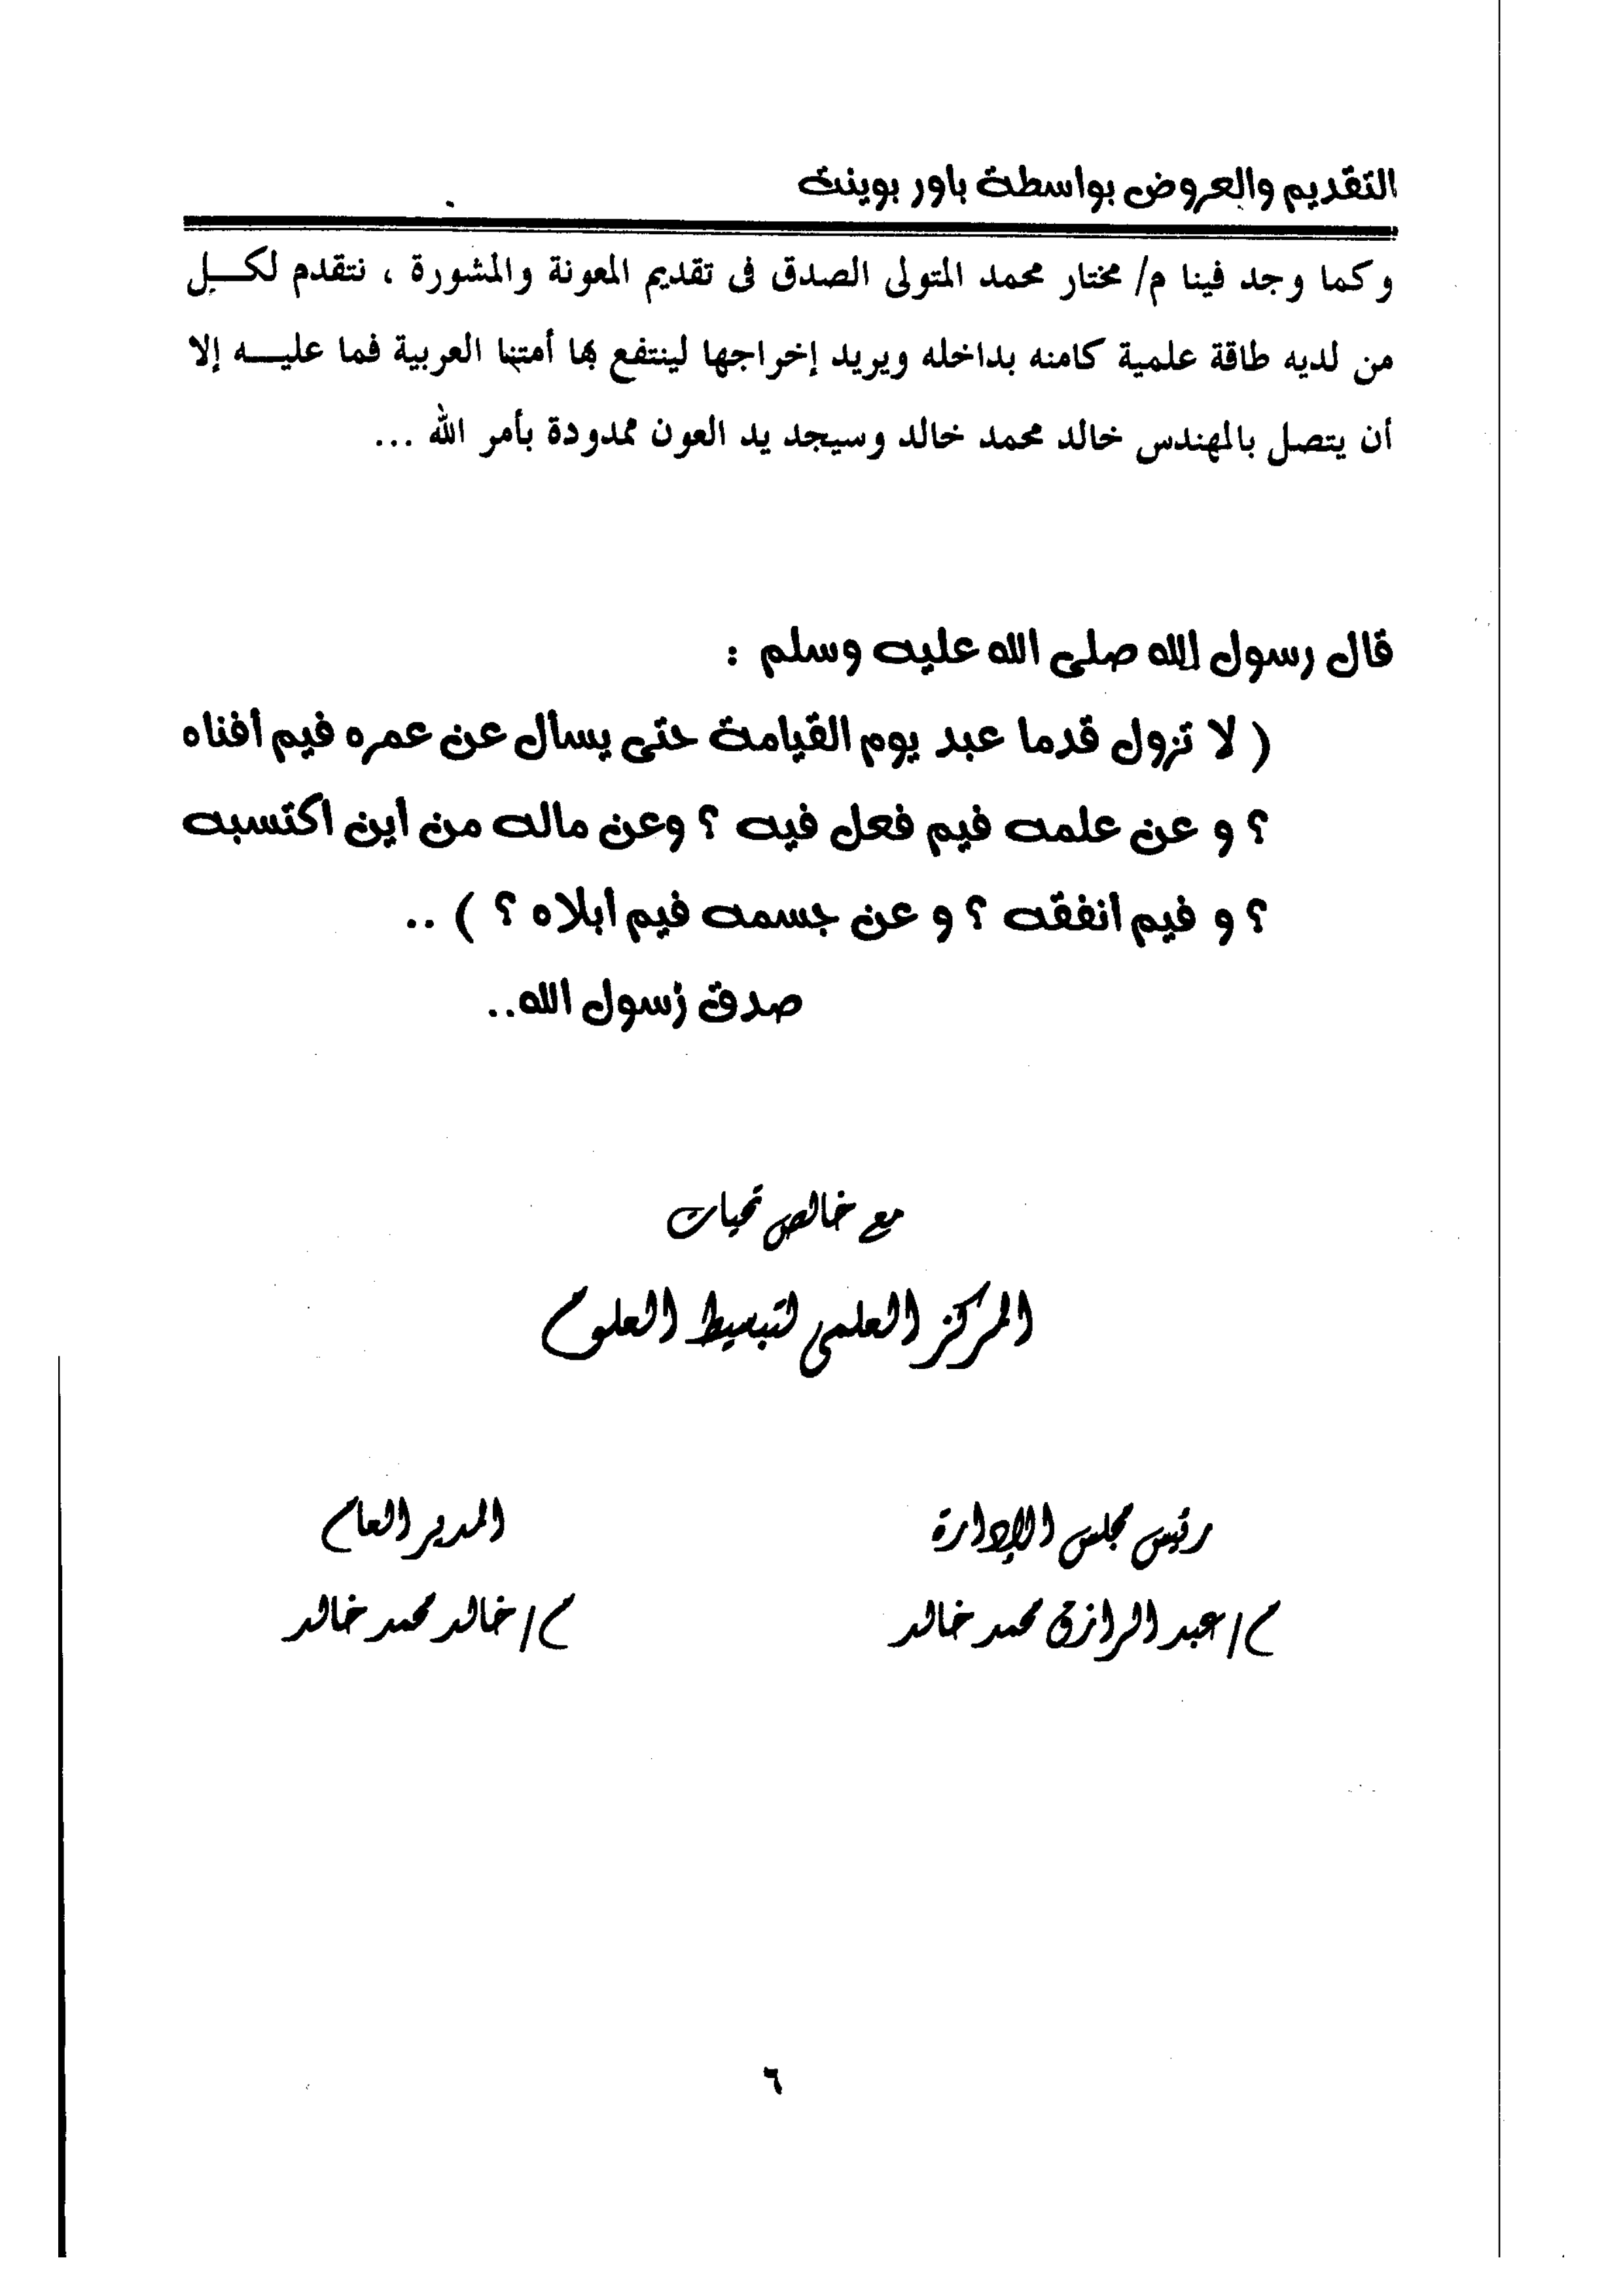 التقديم والعروض بواسطة باور بوينت
وكما وجد فينا م/ مختار محمد المتولى الصدق فى تقديم المعونة والمشورة ، نتقدم لكل
من لديه طاقة علمية كامنه بداخله ويريد إخراجها لينتفع بها أمتنا العربية فما عليه إلا
أن يتصل بالمهندس خالد محمد خالد وسيجد يد العون ممدودة بأمر الله ...
قال رسول الله صلى الله عليه وسلم :
( لا تزول قدما عبد يوم القيامة حتى يسأل عن عمره فيم أفناه
؟ و عن علمه فيم فعل فيه ؟ وعن ماله من أين اكتسبه
؟ و فيم أنفقه ؟ و عن جسمه فيم أبلاه ؟ ) ..
صدق رسول الله..
مع خالص تحيات
المركز العلمى لتبسيط العلوم
رئيس مجلس الإدارة المدير العام
م/ عبد الرازق محمد خالد م/ خالد محمد خالد
٦